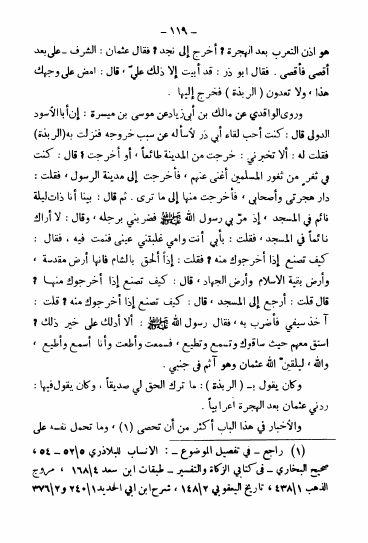 — ١١٩ —
هو اذن التعرب بعد الهجرة ? أخرج إلى نجد ? فقال عثمان : الشرف -على بعد
أقصى فأقصى . فقال ابو ذر : قد أبيت إلا ذلك عليّ ، قال : امض على وجهك
هذا ، ولا تعدون ( الربذة ) فخرج إليها .
وروى الواقدي عن مالك بن أبي زياد عن موسى بن ميسرة : إن أبا الأسود
الدولى قال : كنت أحب لقاء أبي ذر لأسأله عن سبب خروجه فنزلت به (الربذة)
فقلت له : ألا تخبرني : خرجت من المدينة طائعاً ، أو أخرجت ? قال : كنت
في ثغر من ثغور المسلمين أغنى عنهم ، فأخرجت إلى مدينة الرسول ، فقلت :
دار هجرتي وأصحابي ، فأخرجت منها إلى ما ترى . ثم قال : بينا أنا ذات ليلة
نائم في المسجد ، إذ مرّ بي رسول الله ﷺ فضربني برجله ، وقال : لا أراك
نائماً في المسجد ، فقلت : بأبي أنت وامي غلبتني عينى فنمت فيه ، فقال :
كيف تصنع إذا أخرجوك منه ? فقلت : إذاً ألحق بالشام فانها أرض مقدسة ،
وأرض بقية الاسلام وأرض الجهاد ، قال : كيف تصنع إذا أخرجوك منها ?
قال قلت : أرجع إلى المسجد ، قال : كيف تصنع إذا أخرجوك منه ? قلت :
آخذ سيفي فأضرب به ، فقال رسول الله ﷺ : ألا أدلك على خير ذلك ?
اسنق معهم حيث ساقوك وتسمع وتطيع ، فسمعت وأطعت وأنا أسمع وأطيع ،
والله ، ليلقينّ الله عثمان وهو آثم في جنبي .
وكان يقول بـ ( الربذة ) : ما ترك الحق لي صديقاً ، وكان يقول فيها :
ردني عثمان بعد الهجرة أعرابياً .
والأخبار في هذا الباب أكثر من أن تحصى (١) ، وما تحمل نفسه على
(١) راجع - في تفصيل الموضوع - : الانساب للبلاذري ٥/٥٢ - ٥٤ ،
صحيح البخاري - في كتابي الزكاة والتفسير - طبقات ابن سعد ٤/١٦٨ ، مروج
الذهب ١/٤٣٨ ، تاريخ اليعقوبي ٢/١٤٨ ، شرح ابن ابي الحديد ١/٢٤٠ و ٢/٣٧٦